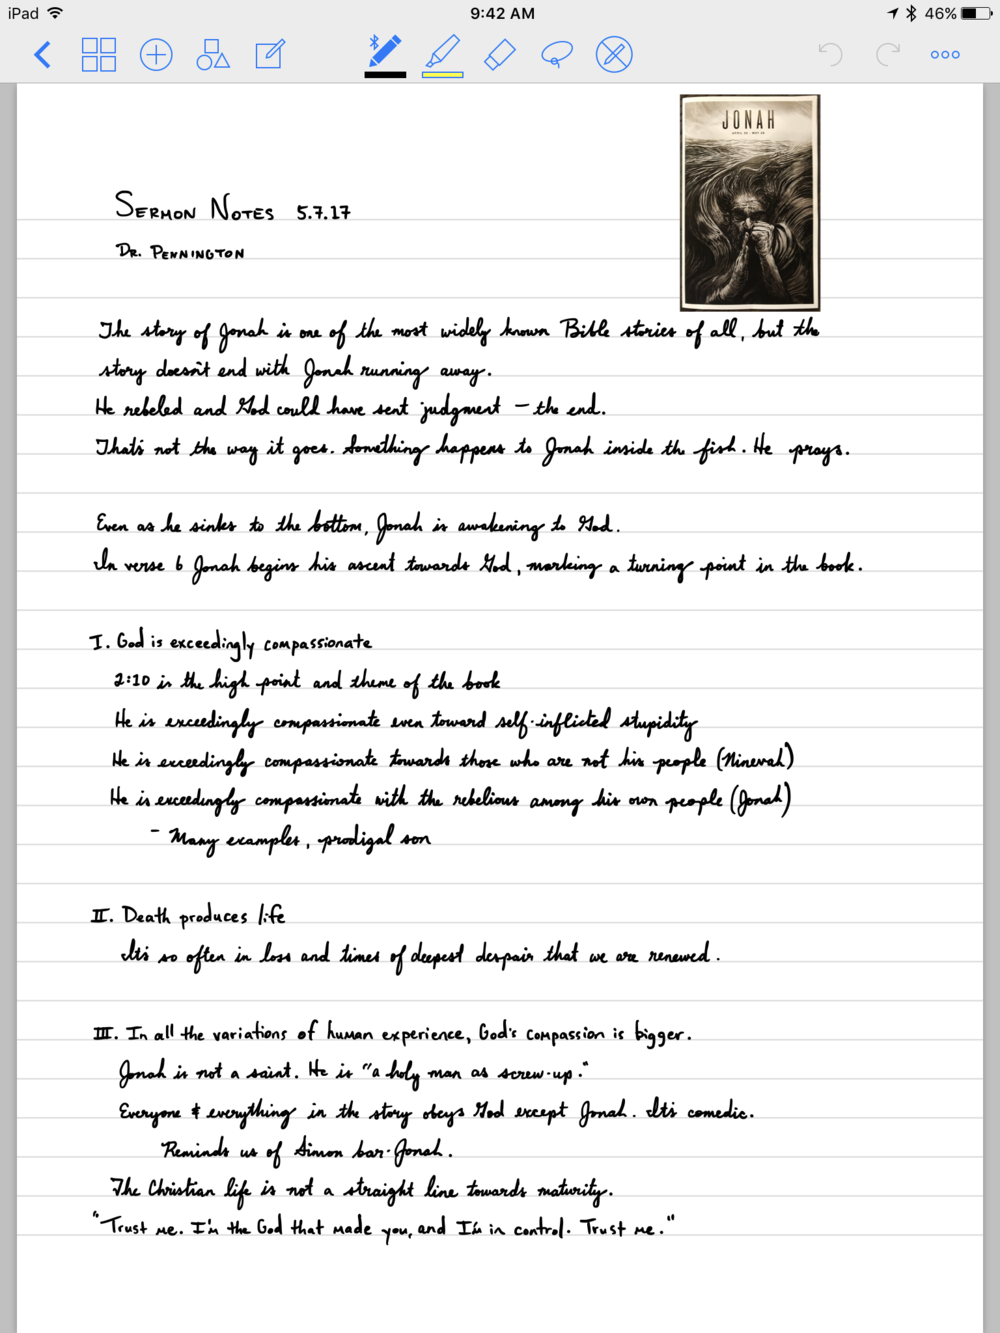 iPad
9:42 AM
46%
JONAH
SERMON NOTES 5.7.17
DR. PENNINGTON
The story of Jonah is one of the most widely known Bible stories of all, but the
story doesn't end with Jonah running away.
He rebeled and God could have sent judgment – the end.
That's not the way it goes. Something happens to Jonah inside the fish. He prays.
Even as he sinks to the bottom, Jonah is awakening to God.
In verse 6 Jonah begins his ascent towards God, marking a turning point in the book.
I. God is exceedingly compassionate
2:10 is the high point and theme of the book
He is exceedingly compassionate even toward self-inflicted stupidity
He is exceedingly compassionate towards those who are not his people (Ninevah)
He is exceedingly compassionate with the rebelious among his own people (Jonah)
- Many examples, prodigal son
II. Death produces life
It's so often in loss and times of deepest despair that we are renewed.
III. In all the variations of human experience, God's compassion is bigger.
Jonah is not a saint. He is "a holy man as screw-up."
Everyone & everything in the story obeys God except Jonah. It's comedic.
Reminds us of Simon bar-Jonah.
The Christian life is not a straight line towards maturity.
"Trust me. I'm the God that made you, and I'm in control. Trust me."